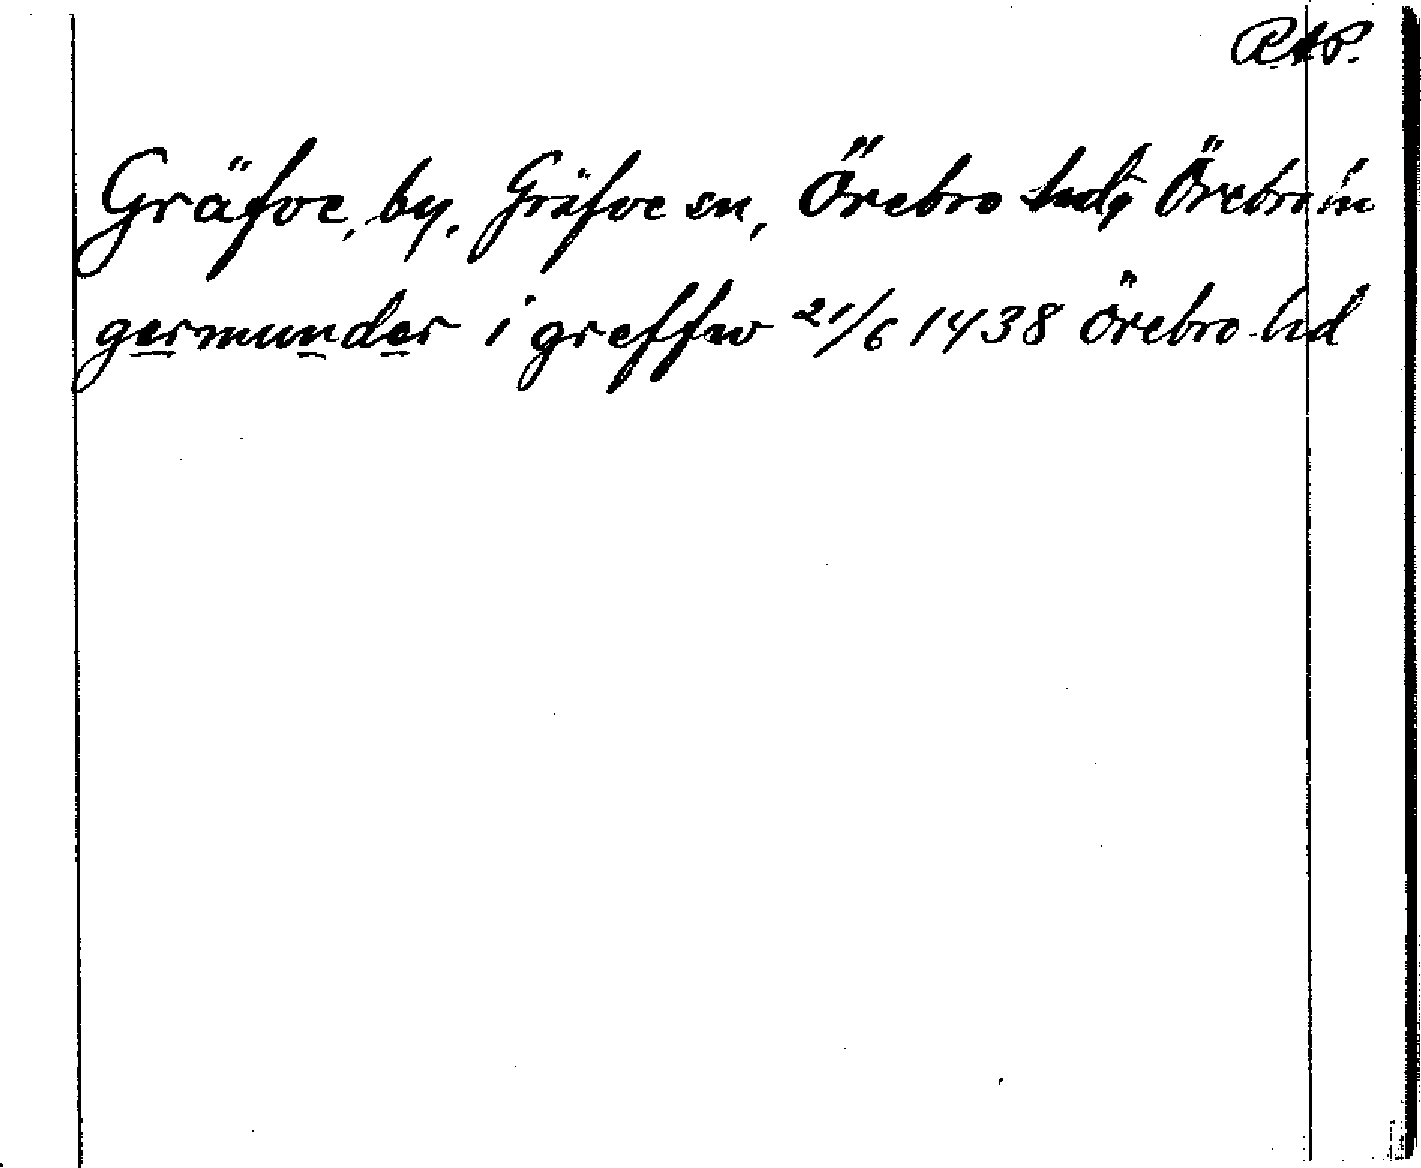 RAP.
Gräfve, by, Gräfve sn, Örebro hd, Örebro län
germunder i greffw 21/6 1438 Örebro hd